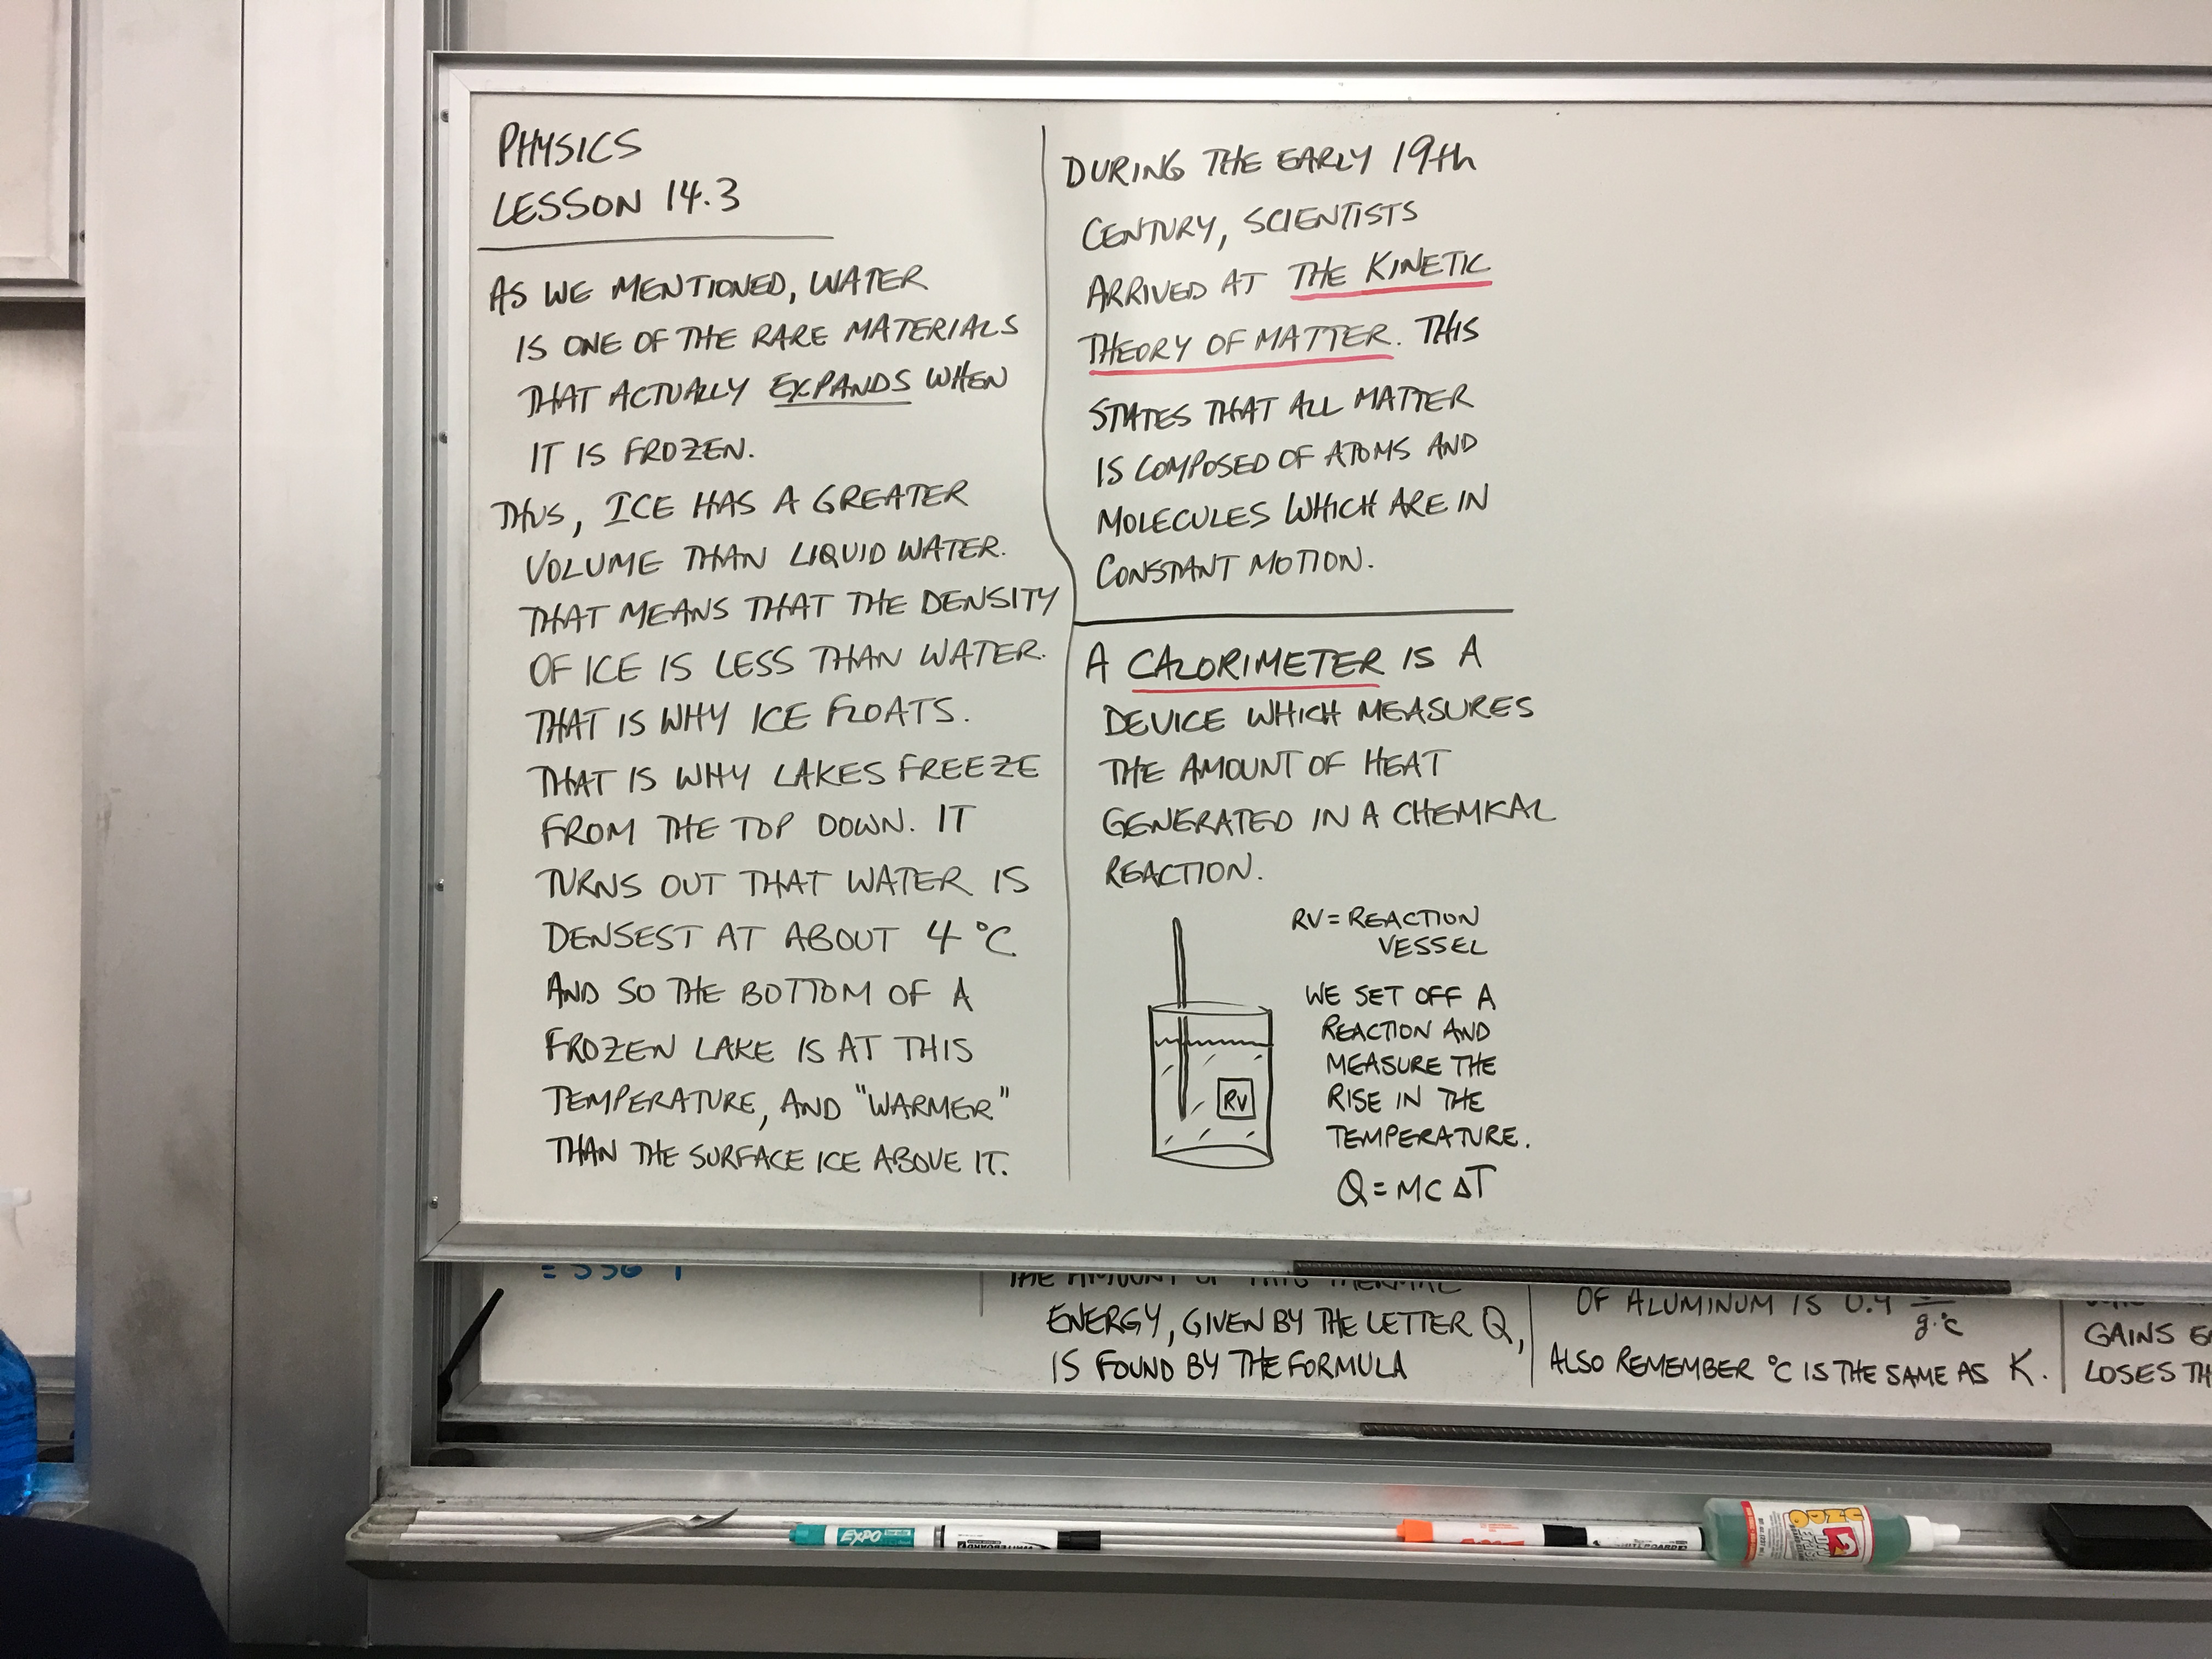 PHYSICS
LESSON 14.3
AS WE MENTIONED, WATER
IS ONE OF THE RARE MATERIALS
THAT ACTUALLY EXPANDS WHEN
IT IS FROZEN.
THUS, ICE HAS A GREATER
VOLUME THAN LIQUID WATER.
THAT MEANS THAT THE DENSITY
OF ICE IS LESS THAN WATER.
THAT IS WHY ICE FLOATS.
THAT IS WHY LAKES FREEZE
FROM THE TOP DOWN. IT
TURNS OUT THAT WATER IS
DENSEST AT ABOUT 4 °C
AND SO THE BOTTOM OF A
FROZEN LAKE IS AT THIS
TEMPERATURE, AND "WARMER"
THAN THE SURFACE ICE ABOVE IT.
DURING THE EARLY 19th
CENTURY, SCIENTISTS
ARRIVED AT THE KINETIC
THEORY OF MATTER. THIS
STATES THAT ALL MATTER
IS COMPOSED OF ATOMS AND
MOLECULES WHICH ARE IN
CONSTANT MOTION.
A CALORIMETER IS A
DEVICE WHICH MEASURES
THE AMOUNT OF HEAT
GENERATED IN A CHEMICAL
REACTION.
RV = REACTION
VESSEL
WE SET OFF A
REACTION AND
MEASURE THE
RISE IN THE
TEMPERATURE.
Q = MC ΔT
RV
THE AMOUNT OF THIS THERMAL
ENERGY, GIVEN BY THE LETTER Q,
IS FOUND BY THE FORMULA
OF ALUMINUM IS 0.9
g·°C
ALSO REMEMBER °C IS THE SAME AS K.
GAINS
LOSES
EXPO